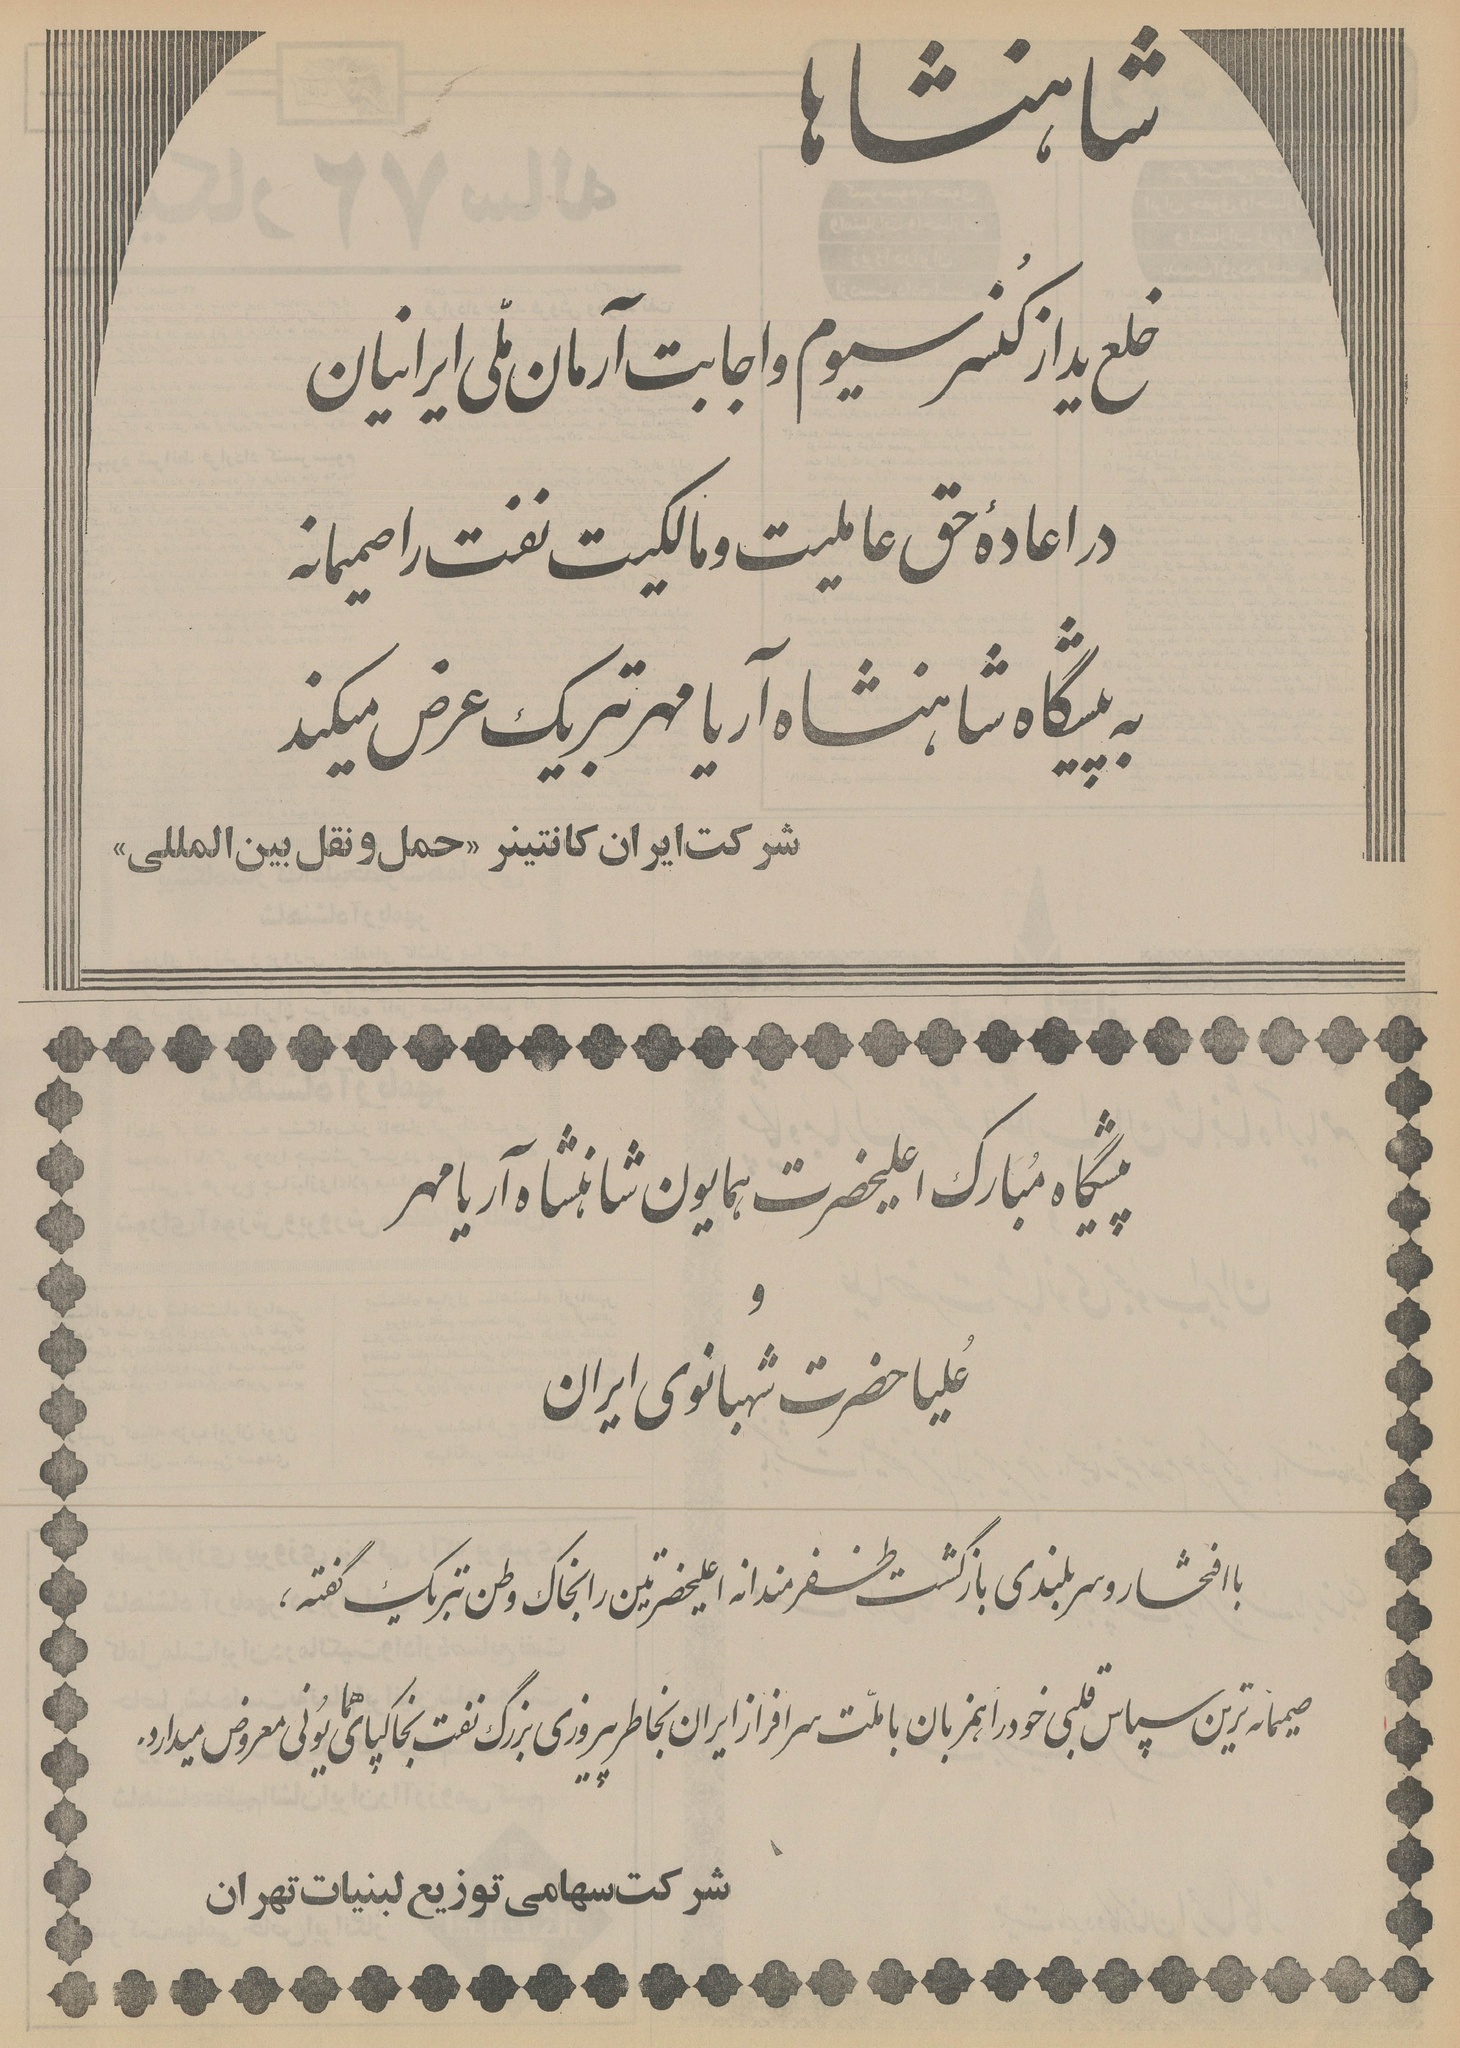 شاهنشاها
خلع ید از کُنسرسیوم و اجابت آرمان ملّی ایرانیان
در اعادهٔ حق عاملیت و مالکیت نفت را صمیمانه
به پیشگاه شاهنشاه آریامهر تبریک عرض میکند
شرکت ایران کانتینر «حمل و نقل بین‌المللی»
پیشگاه مُبارک اعلیحضرت همایون شاهنشاه آریامهر
و
عُلیاحضرت شهبانوی ایران
با افتخار و سربلندی بازگشت ظفرمندانه اعلیحضرتین را بخاک وطن تبریک گفته،
صمیمانه‌ترین سپاس قلبی خود را همزبان با ملّت سرافراز ایران بخاطر پیروزی بزرگ نفت بخاکپای همایُونی معروض میدارد.
شرکت سهامی توزیع لبنیات تهران